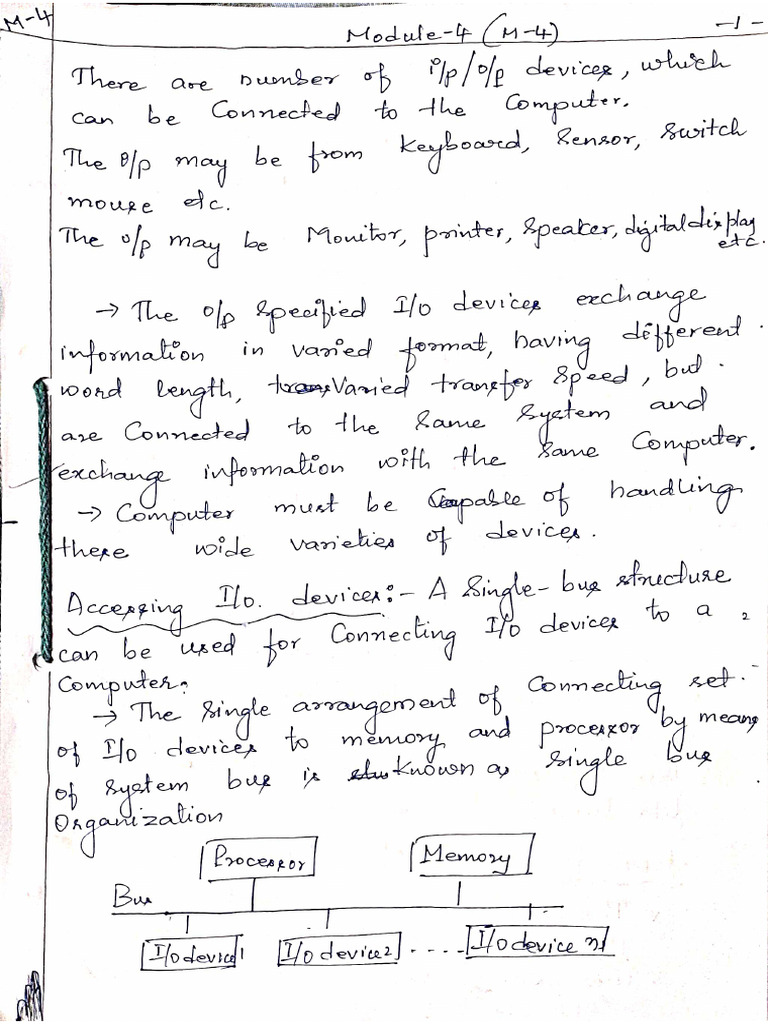 M-4
Module-4 (M-4) -1-
There are number of i/p/o/p devices, which
can be Connected to the Computer.
The o/p may be from Keyboard, Sensor, Switch
mouse etc.
The o/p may be Monitor, printer, Speaker, digital display
etc.
→ The o/p Specified I/o devices exchange
information in varied format, having different
word length, Varied transfer Speed, but
are Connected to the Same System and
exchange information with the Same Computer.
→ Computer must be Capable of handling
these wide varieties of devices.
Accessing I/o. devices:- A Single-bus structure
can be used for Connecting I/o devices to a
Computer.
→ The single arrangement of Connecting set
of I/o devices to memory and processor by means
of System bus is known as Single bus
Organization
Processor Memory
Bus
I/o device1 I/o device2 .... I/o device n